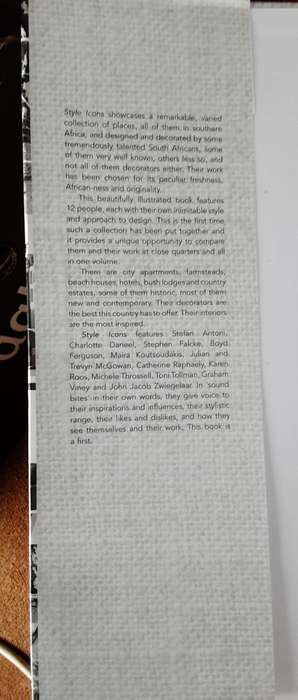 Style Icons showcases a remarkable, varied
collection of places, all of them in southern
Africa, and designed and decorated by some
tremendously talented South Africans, some
of them very well known, others less so, and
not all of them decorators either. Their work
has been chosen for its peculiar freshness,
African-ness and originality.
This beautifully illustrated book features
12 people, each with their own inimitable style
and approach to design. This is the first time
such a collection has been put together and
it provides a unique opportunity to compare
them and their work at close quarters and all
in one volume.
There are city apartments, farmsteads,
beach houses, hotels, bush lodges and country
estates, some of them historic, most of them
new and contemporary. Their decorators are
the best this country has to offer. Their interiors
are the most inspired.
Style Icons features: Stefan Antoni,
Charlotte Daneel, Stephen Falcke, Boyd
Ferguson, Maira Koutsoudakis, Julian and
Trevyn McGowan, Catherine Raphaely, Karen
Roos, Michele Throssell, Toni Tollman, Graham
Viney and John Jacob Zwiegelaar. In 'sound
bites' in their own words, they give voice to
their inspirations and influences, their stylistic
range, their likes and dislikes, and how they
see themselves and their work. This book is
a first.